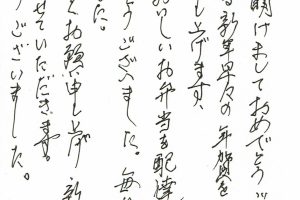 明けましておめでとう
る新年早々の年賀を
し上げます、
おいしいお弁当を配達
とうございました。毎
た。
とお願い申し上げ 新
せていただきます。
うございました。